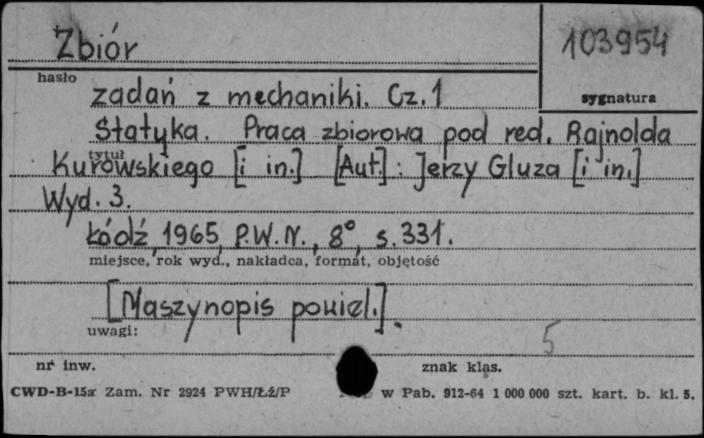 Zbiór
103954
hasło
zadań z mechaniki. Cz. 1
sygnatura
Statyka. Praca zbiorowa pod red. Rajnolda
tytuł
Kurowskiego [i in.] [Aut.]: Jerzy Gluza [i in.]
Wyd. 3.
Łódź, 1965, P.W.N., 8°, s. 331.
miejsce, rok wyd., nakładca, format, objętość
[Maszynopis powiel.].
uwagi:
5
nr inw.
znak klas.
CWD-B-15a Zam. Nr 2924 PWH/Łź/P w Pab. 912-64 1 000 000 szt. kart. b. kl. 5.